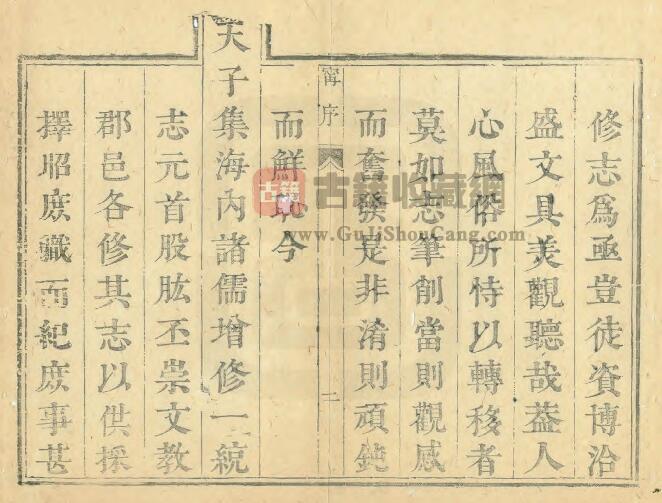 修志為亟豈徒資博洽
盛文具美觀聽哉葢人
心風俗所恃以轉移者
莫如志筆削當則觀感
而奮發是非淆則頑鈍
而鮮恥今
甯序 二
天子集海內諸儒增修一統
志元首股肱丕崇文教
郡邑各修其志以供採
擇昭庶職而紀庶事甚
古籍
古籍收藏網
www.GuJiShouCang.com